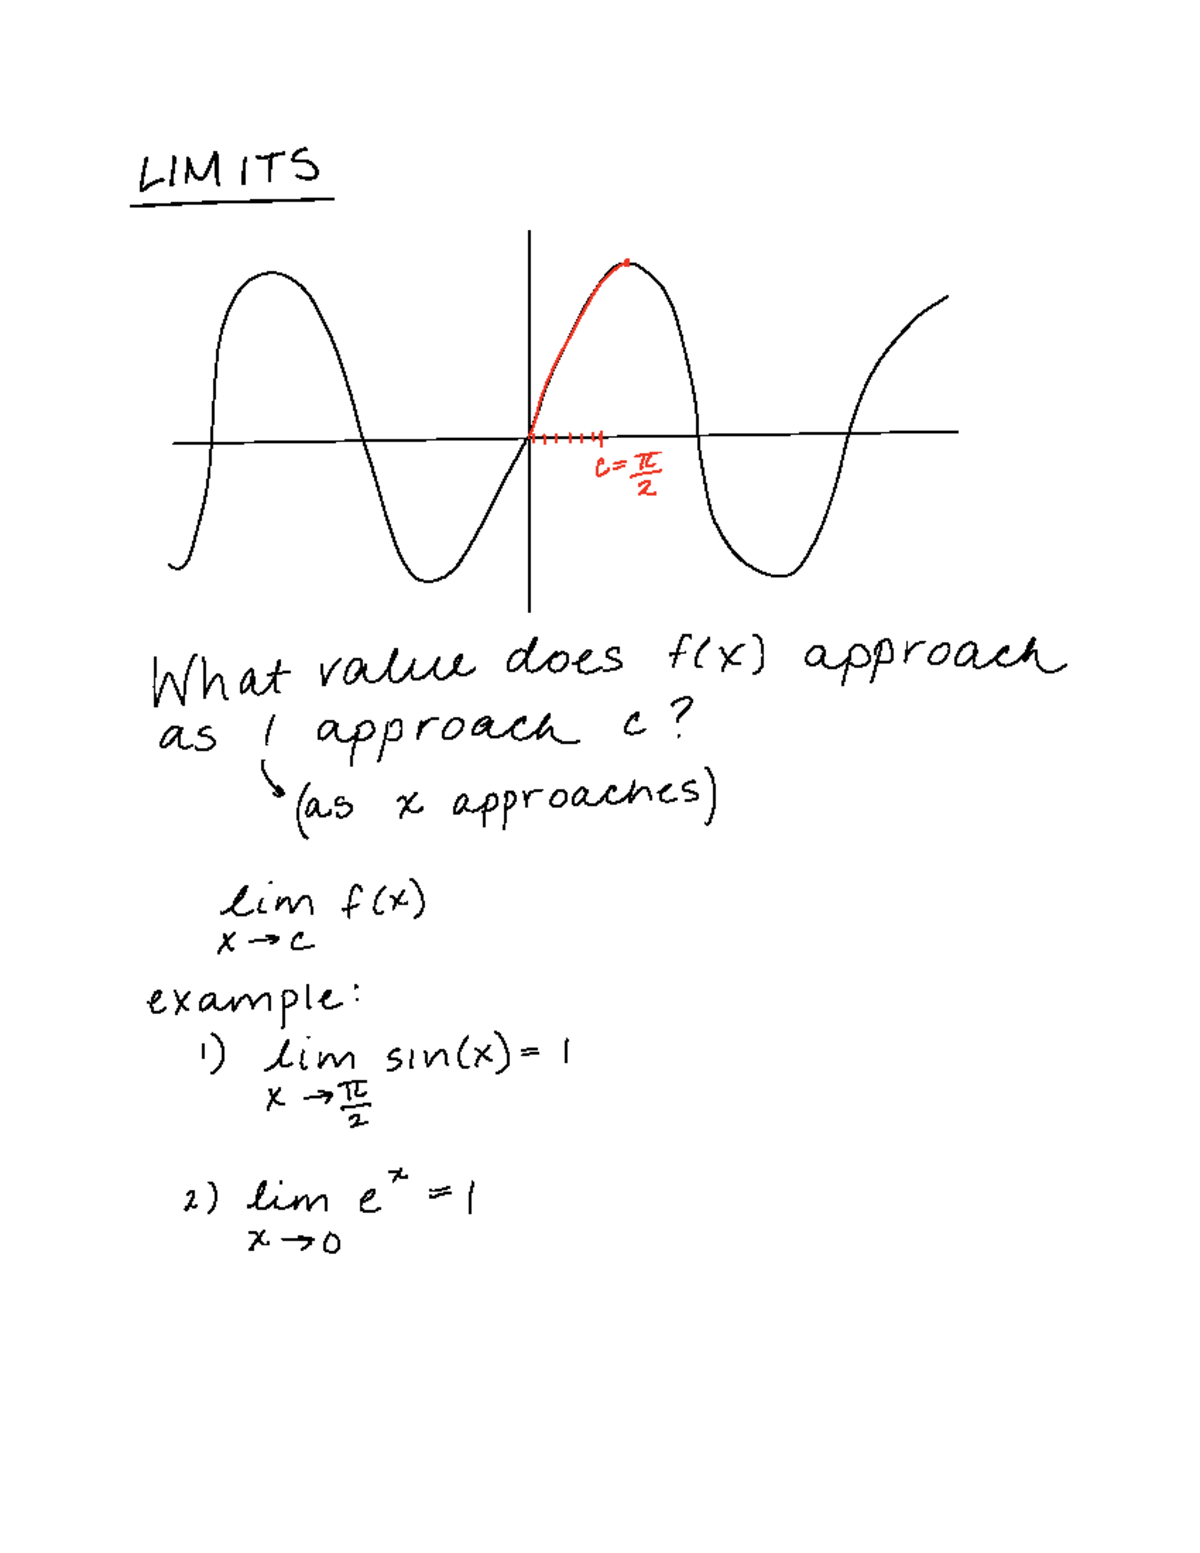 LIMITS
c = π/2
What value does f(x) approach
as I approach c?
(as x approaches)
lim f(x)
x → c
example:
1) lim sin(x) = 1
x → π/2
2) lim eˣ = 1
x → 0